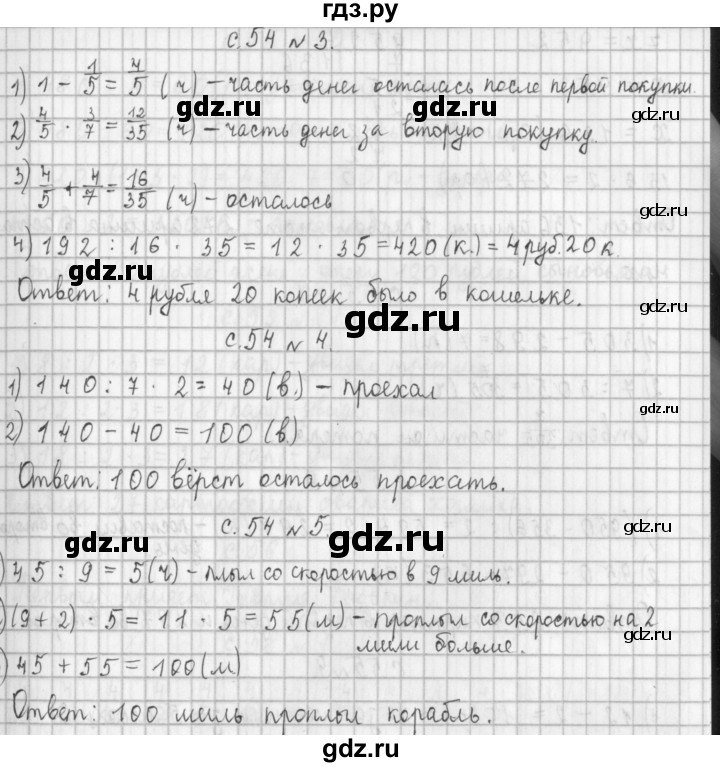 гдз.ру
с. 54 № 3.
1) 1 - 1/5 = 4/5 (ч) - часть денег осталась после первой покупки.
gdz.ru gdz.ru
2) 4/5 · 3/7 = 12/35 (ч) - часть денег за вторую покупку.
3) 4/5 + 4/7 = 16/35 (ч) - осталось
gdz.ru
4) 192 : 16 · 35 = 12 · 35 = 420 (к.) = 4 руб. 20 к.
gdz.ru
Ответ: 4 рубля 20 копеек было в кошельке.
gdz.ru gdz.ru
с. 54 № 4.
1) 140 : 7 · 2 = 40 (в.) - проехал
gdz.ru
2) 140 - 40 = 100 (в.)
Ответ: 100 вёрст осталось проехать.
с. 54 № 5
gdz.ru gdz.ru gdz.ru
) 45 : 9 = 5 (ч) - плыл со скоростью в 9 миль.
) (9 + 2) · 5 = 11 · 5 = 55 (м) - проплыл со скоростью на 2
мили больше.
gdz.ru
) 45 + 55 = 100 (м)
Ответ: 100 миль проплыл корабль.
gdz.ru
gdz.ru